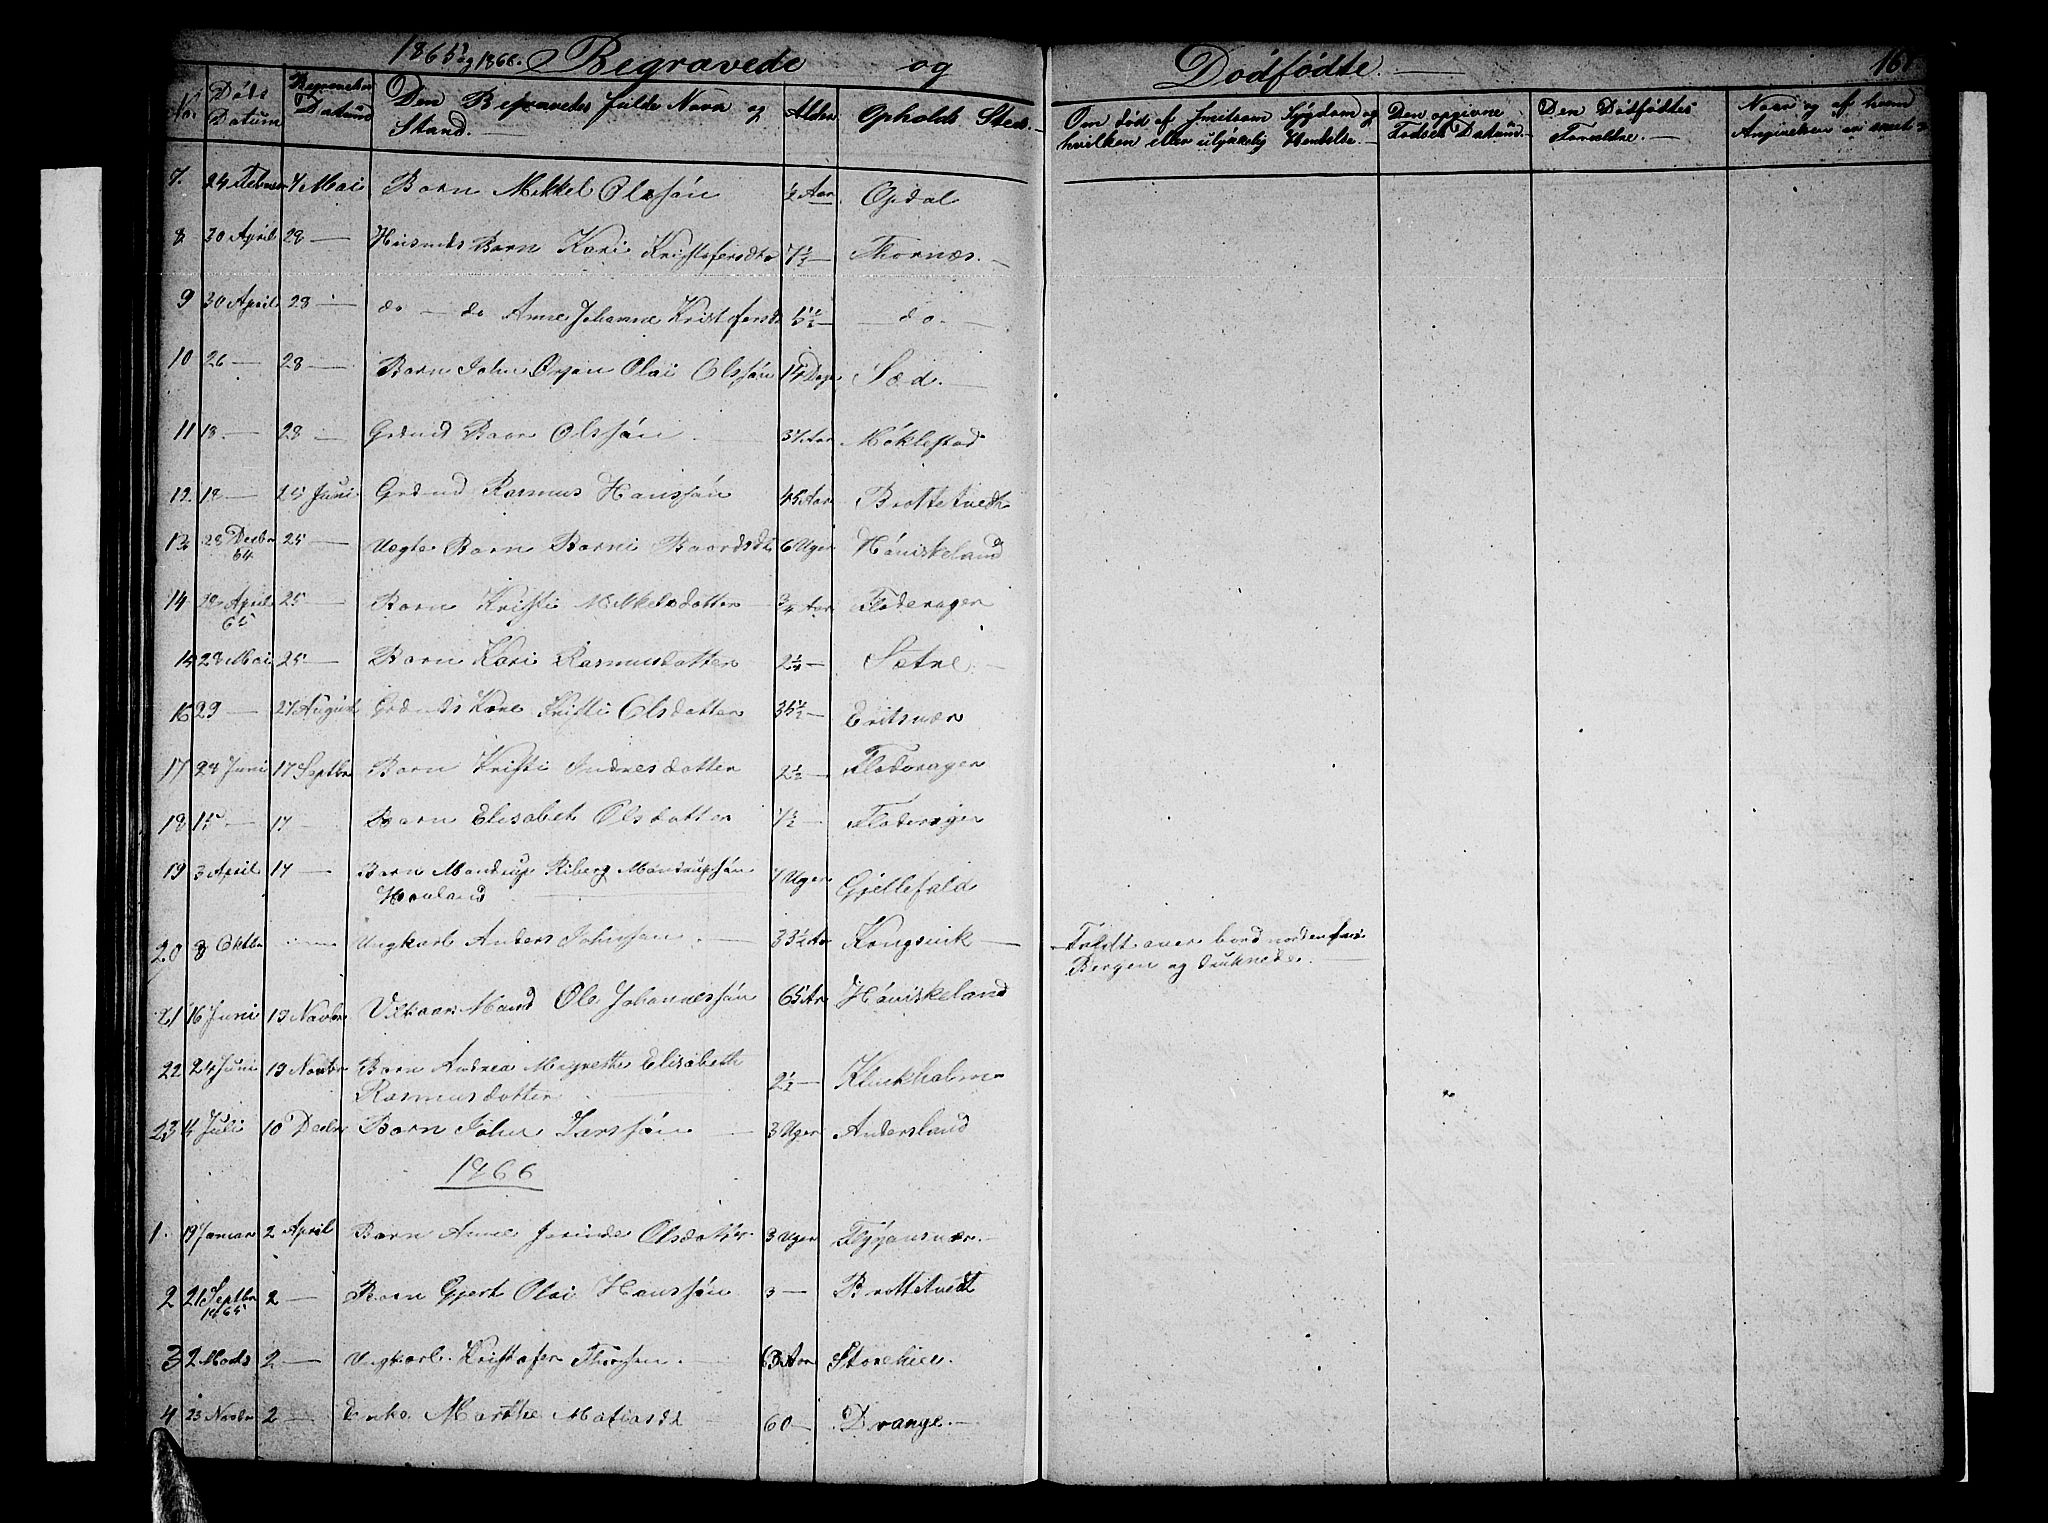 1865 og 1866. Begravede og Dødfødte. 161
No. Døds Datum Begravelses Datum Den Begravedes fulde Navn og Stand. Alder Opholds Sted. Om død af smitsom Sygdom og hvilken eller ulykkelig Hendelse. Den opgivne Fødsel Datum. Den Dødfødtes Forældre. Naar og af hvem Angivelsen er
7. 24 Februar 7 Mai Barn Mikkel Olssøn ½ Aar Opdal
8 30 April 28 — Husmds Barn Kari Kristofersdtr 7½ — Thornæs. —
9 30 April 28 — do — do Anne Johanne Kristofersdr 5½ — — do. —
10 26 — 28 — Barn John Ørjan Olai Olssøn 14 Dage Sæd. —
11 18 — 28 — Grdmd Baar Olssøn 37 Aar Møklestad
12 18 — 25 Juni Grdmd Rasmus Hanssøn 45 Aar Brottetvedt
13 28 Decbr 64 25 — Uegte Barn Barni Baardsdtr 6 Uger Høviskeland
14 28 April 65 25 — Barn Kristi Mikkelsdatter ¾ Aar Flodevager
15 28 Mai 25 — Barn Kari Rasmusdatter 2¼ — Sætre. —
16 29 — 27 August Grdmds Kone Kristi Olsdatter 35½ — Eritsvær
17 28 Juni 17 Septbr Barn Kristi Andresdatter 2½ — Flodevager
18 15 — 17 — Barn Elisabet Olsdatter 7½ — Flodevager
19 3 April 17 — Barn Mandrup Riberg Mandrupssøn Hovland 7 Uger Gjellefald
20 8 Oktbr — Ungkarl Anders Johnsen. — 33½ Aar Kongsvik — Faldt over bord norden for Bergen og druknede. —
21 16 Juni 19 Novbr Vilkaars Mand Ole Johannessøn 65 Ar Høviskeland
22 24 Juni 19 Novbr Barn Andrea Magrethe Elisabeth Rasmusdatter 2½ — Klurkholm
23 4 Juli 10 Decbr Barn John Larssøn — 3 Uger Andersland
1866
1. 19 Januar 2 April Barn Anne Olsdatter 3 Uger Flygansvær. —
2 21 Septbr 1865 2 — Barn Gjert Olai Hanssøn 3 — Brottetvedt
3 2 Marts 2 — Ungkarl. Kristofer Thorsen. — 63 Aar Storehiel.
4 23 Novbr 2 — Enke Marthe Matiasdr 60 — Drange. —